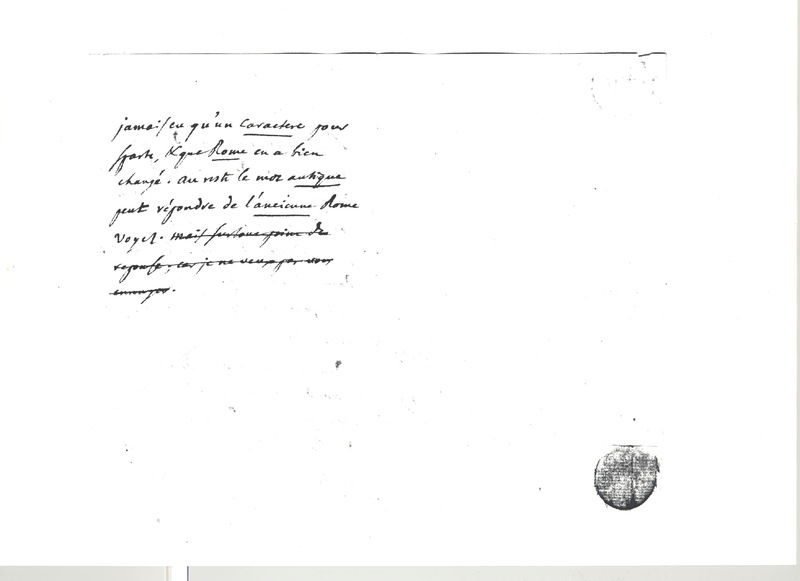 jamais eu qu'un Caractere pour
Sparte, & que Rome en a bien
changé. au reste le mot antique
peut répondre de l'ancienne Rome
voyez. mais surtout point de
reponse, car je ne veux pas vous
ennuyer.